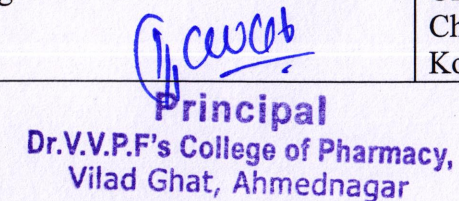 Ch
Ko
Principal
Dr.V.V.P.F's College of Pharmacy,
Vilad Ghat, Ahmednagar